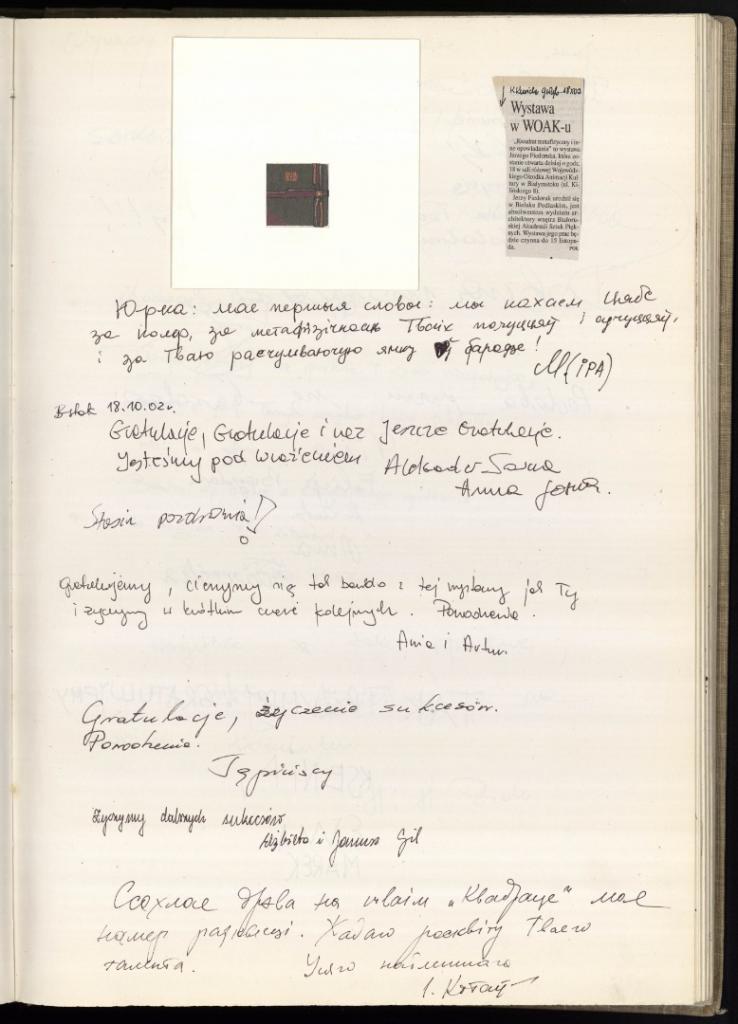 Kurier 18 X 02
Wystawa
w WOAK-u
„Kwadrat metafizyczny i inne opowiadania” to wystawa
Jerzego Fiedoruka, która zostanie otwarta dzisiaj o godz.
18 w sali różowej Wojewódzkiego Ośrodka Animacji Kultury
w Białymstoku (ul. Kilińskiego 8).
Jerzy Fiedoruk urodził się
w Bielsku Podlaskim, jest
absolwentem wydziału architektury wnętrz Białoruskiej
Akademii Sztuk Pięknych. Wystawa jego prac będzie
czynna do 15 listopada.
Юрка: мае першыя словы: мы кахаем Цябе
за колер, за метафізічнасць Тваіх пачуццяў і адчуванняў,
і за Тваю расчульваючую
М (IPA)
B-stok 18.10.02r.
Gratulacje, Gratulacje i raz Jeszcze Gratulacje.
Jesteśmy pod wrażeniem Aleksander
Anna
pozdrowienia!
Gratulujemy, cieszymy się tak bardzo z tej wystawy jak Ty
i życzymy w krótkim czasie kolejnych. Pozdrowienia.
Ania i Artur.
Gratulacje, życzenia sukcesów.
Pozdrowienia.
Życzymy dalszych sukcesów
Elżbieta i Janusz Gil
Ссохлае дрэва на тваім „Квадраце” мае
намер распвісці. Жадаю росквіту Твайго
таленту. Усяго найлепшага